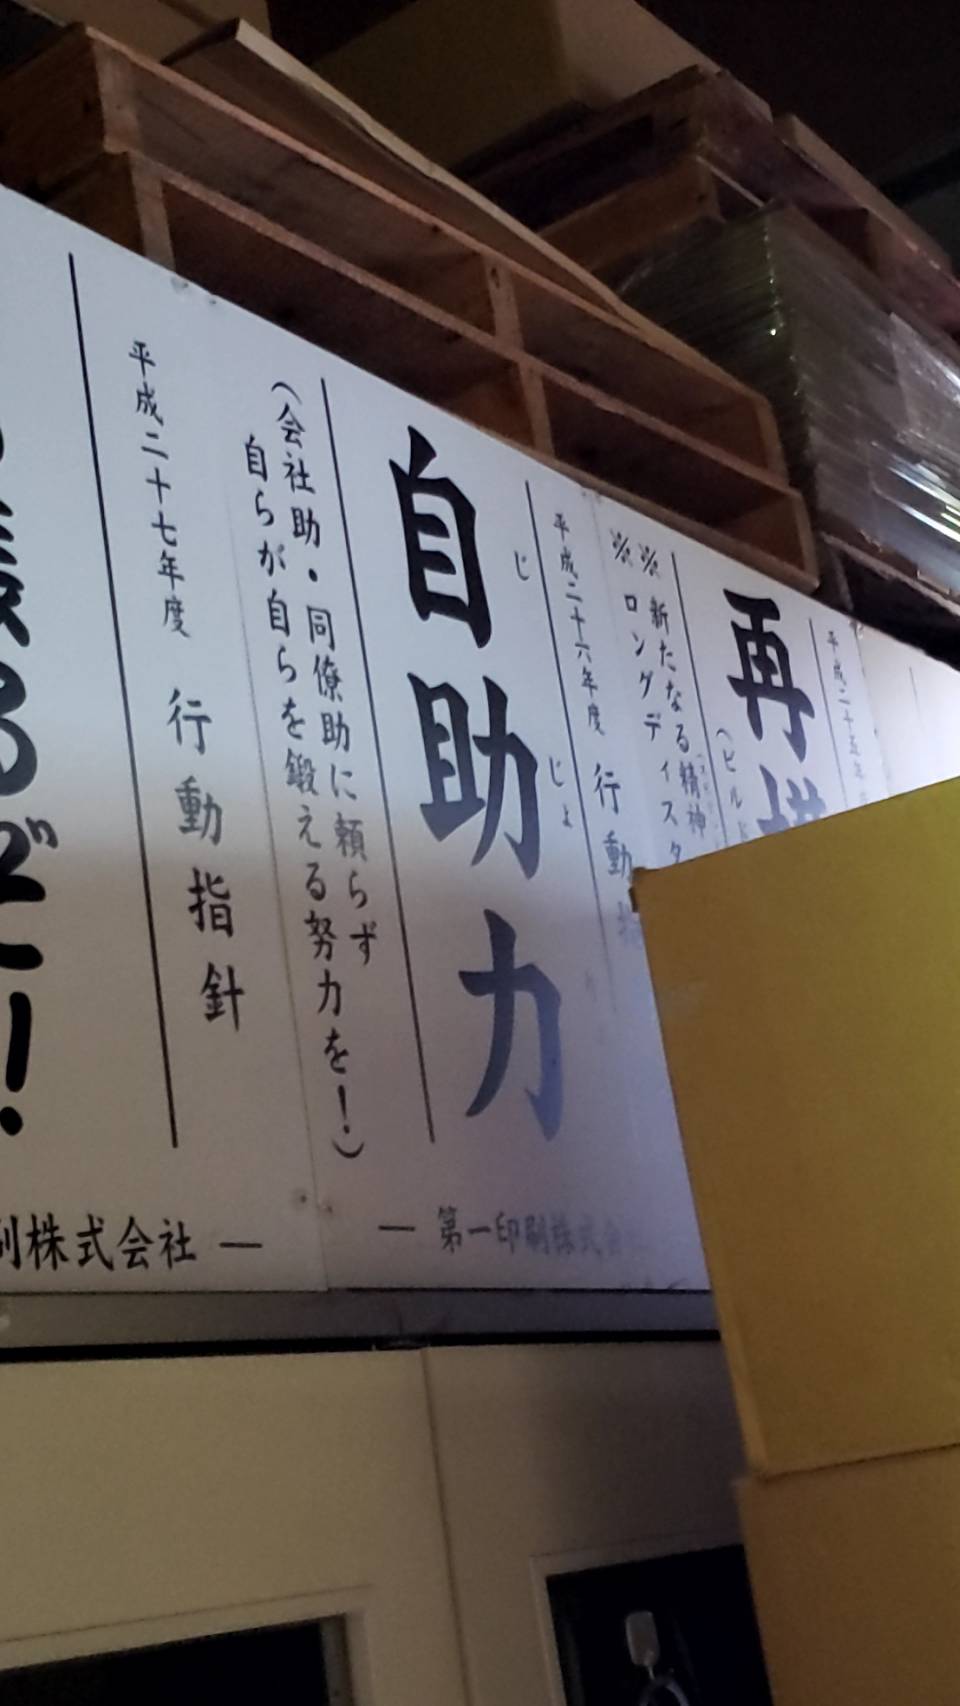 平成二十五年
再
※新たなる精神
※ロングディスタ
平成二十六年度 行動指
じじょ
自助力
(会社助・同僚助に頼らず
自らが自らを鍛える努力を!)
― 第一印刷株式会
平成二十七年度 行動指針
るぞー!
刷株式会社 ―